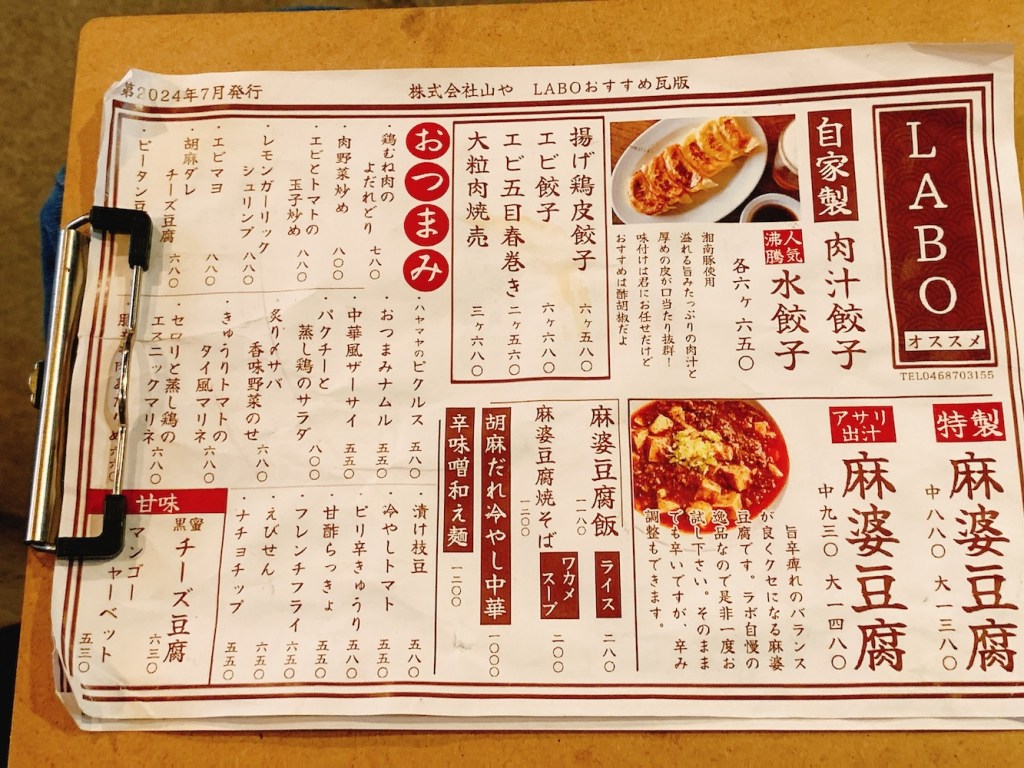 第2024年7月発行
株式会社山や　LABOおすすめ瓦版
LABO
オススメ
TEL0468703155
自家製
肉汁餃子
人気
沸騰
水餃子
各六ヶ 六五〇
湘南豚使用
溢れる旨みたっぷりの肉汁と
厚めの皮が口当たり抜群！
味付けは君にお任せだけど
おすすめは酢胡椒だよ
揚げ鶏皮餃子 六ヶ五八〇
エビ餃子 六ヶ六八〇
エビ五目春巻き 二ヶ五六〇
大粒肉焼売 三ヶ六八〇
おつまみ
・鶏むね肉の
よだれどり 七八〇
・肉野菜炒め 八〇〇
・エビとトマトの
玉子炒め 八八〇
・レモンガーリック
シュリンプ 八八〇
・エビマヨ 八八〇
・胡麻ダレ
チーズ豆腐 六八〇
・ピータン豆
・ハヤマヤのピクルス 五八〇
・おつまみナムル 五五〇
・中華風ザーサイ 五五〇
・パクチーと
蒸し鶏のサラダ 八〇〇
・炙り〆サバ
香味野菜のせ 六八〇
・きゅうりトマトの
タイ風マリネ 六八〇
・セロリと蒸し鶏の
エスニックマリネ 六八〇
六八〇
・漬け枝豆 五八〇
・冷やしトマト 五五〇
・ピリ辛きゅうり 五八〇
・甘酢らっきょ 五五〇
・フレンチフライ 六五〇
・えびせん 六五〇
・ナチョチップ 五五〇
甘味
黒蜜
チーズ豆腐 六三〇
マンゴー
シャーベット 五三〇
特製
麻婆豆腐
中八八〇 大一三八〇
アサリ
出汁
麻婆豆腐
中九三〇 大一四八〇
旨辛痺れのバランス
が良くクセになる麻婆
豆腐です。ラボ自慢の
逸品なので是非一度お
試し下さい。そのまま
でも辛いですが、辛み
調整もできます。
麻婆豆腐飯 一一八〇
麻婆豆腐焼そば 一二〇〇
ライス 二八〇
ワカメ
スープ 二〇〇
胡麻だれ冷やし中華 一〇〇〇
辛味噌和え麺 一二〇〇